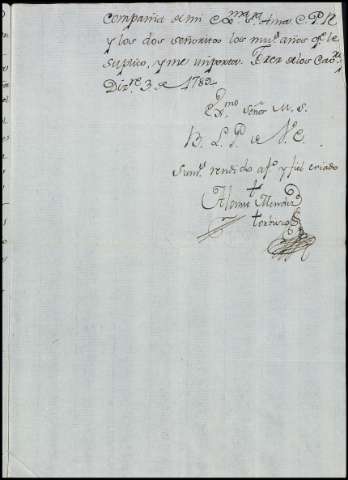 compañia de mi Exma. Sra. Ama C.P.N
y los dos señoritos los mus. años qe. le
suplico, y me importa. Xerez de los Cavs.
Dizre. 3 de 1782
Exmo. Señor M. S.
B. L. P. de V. E.
Sumo. rendido afto. y fiel criado
Alonso Mendez